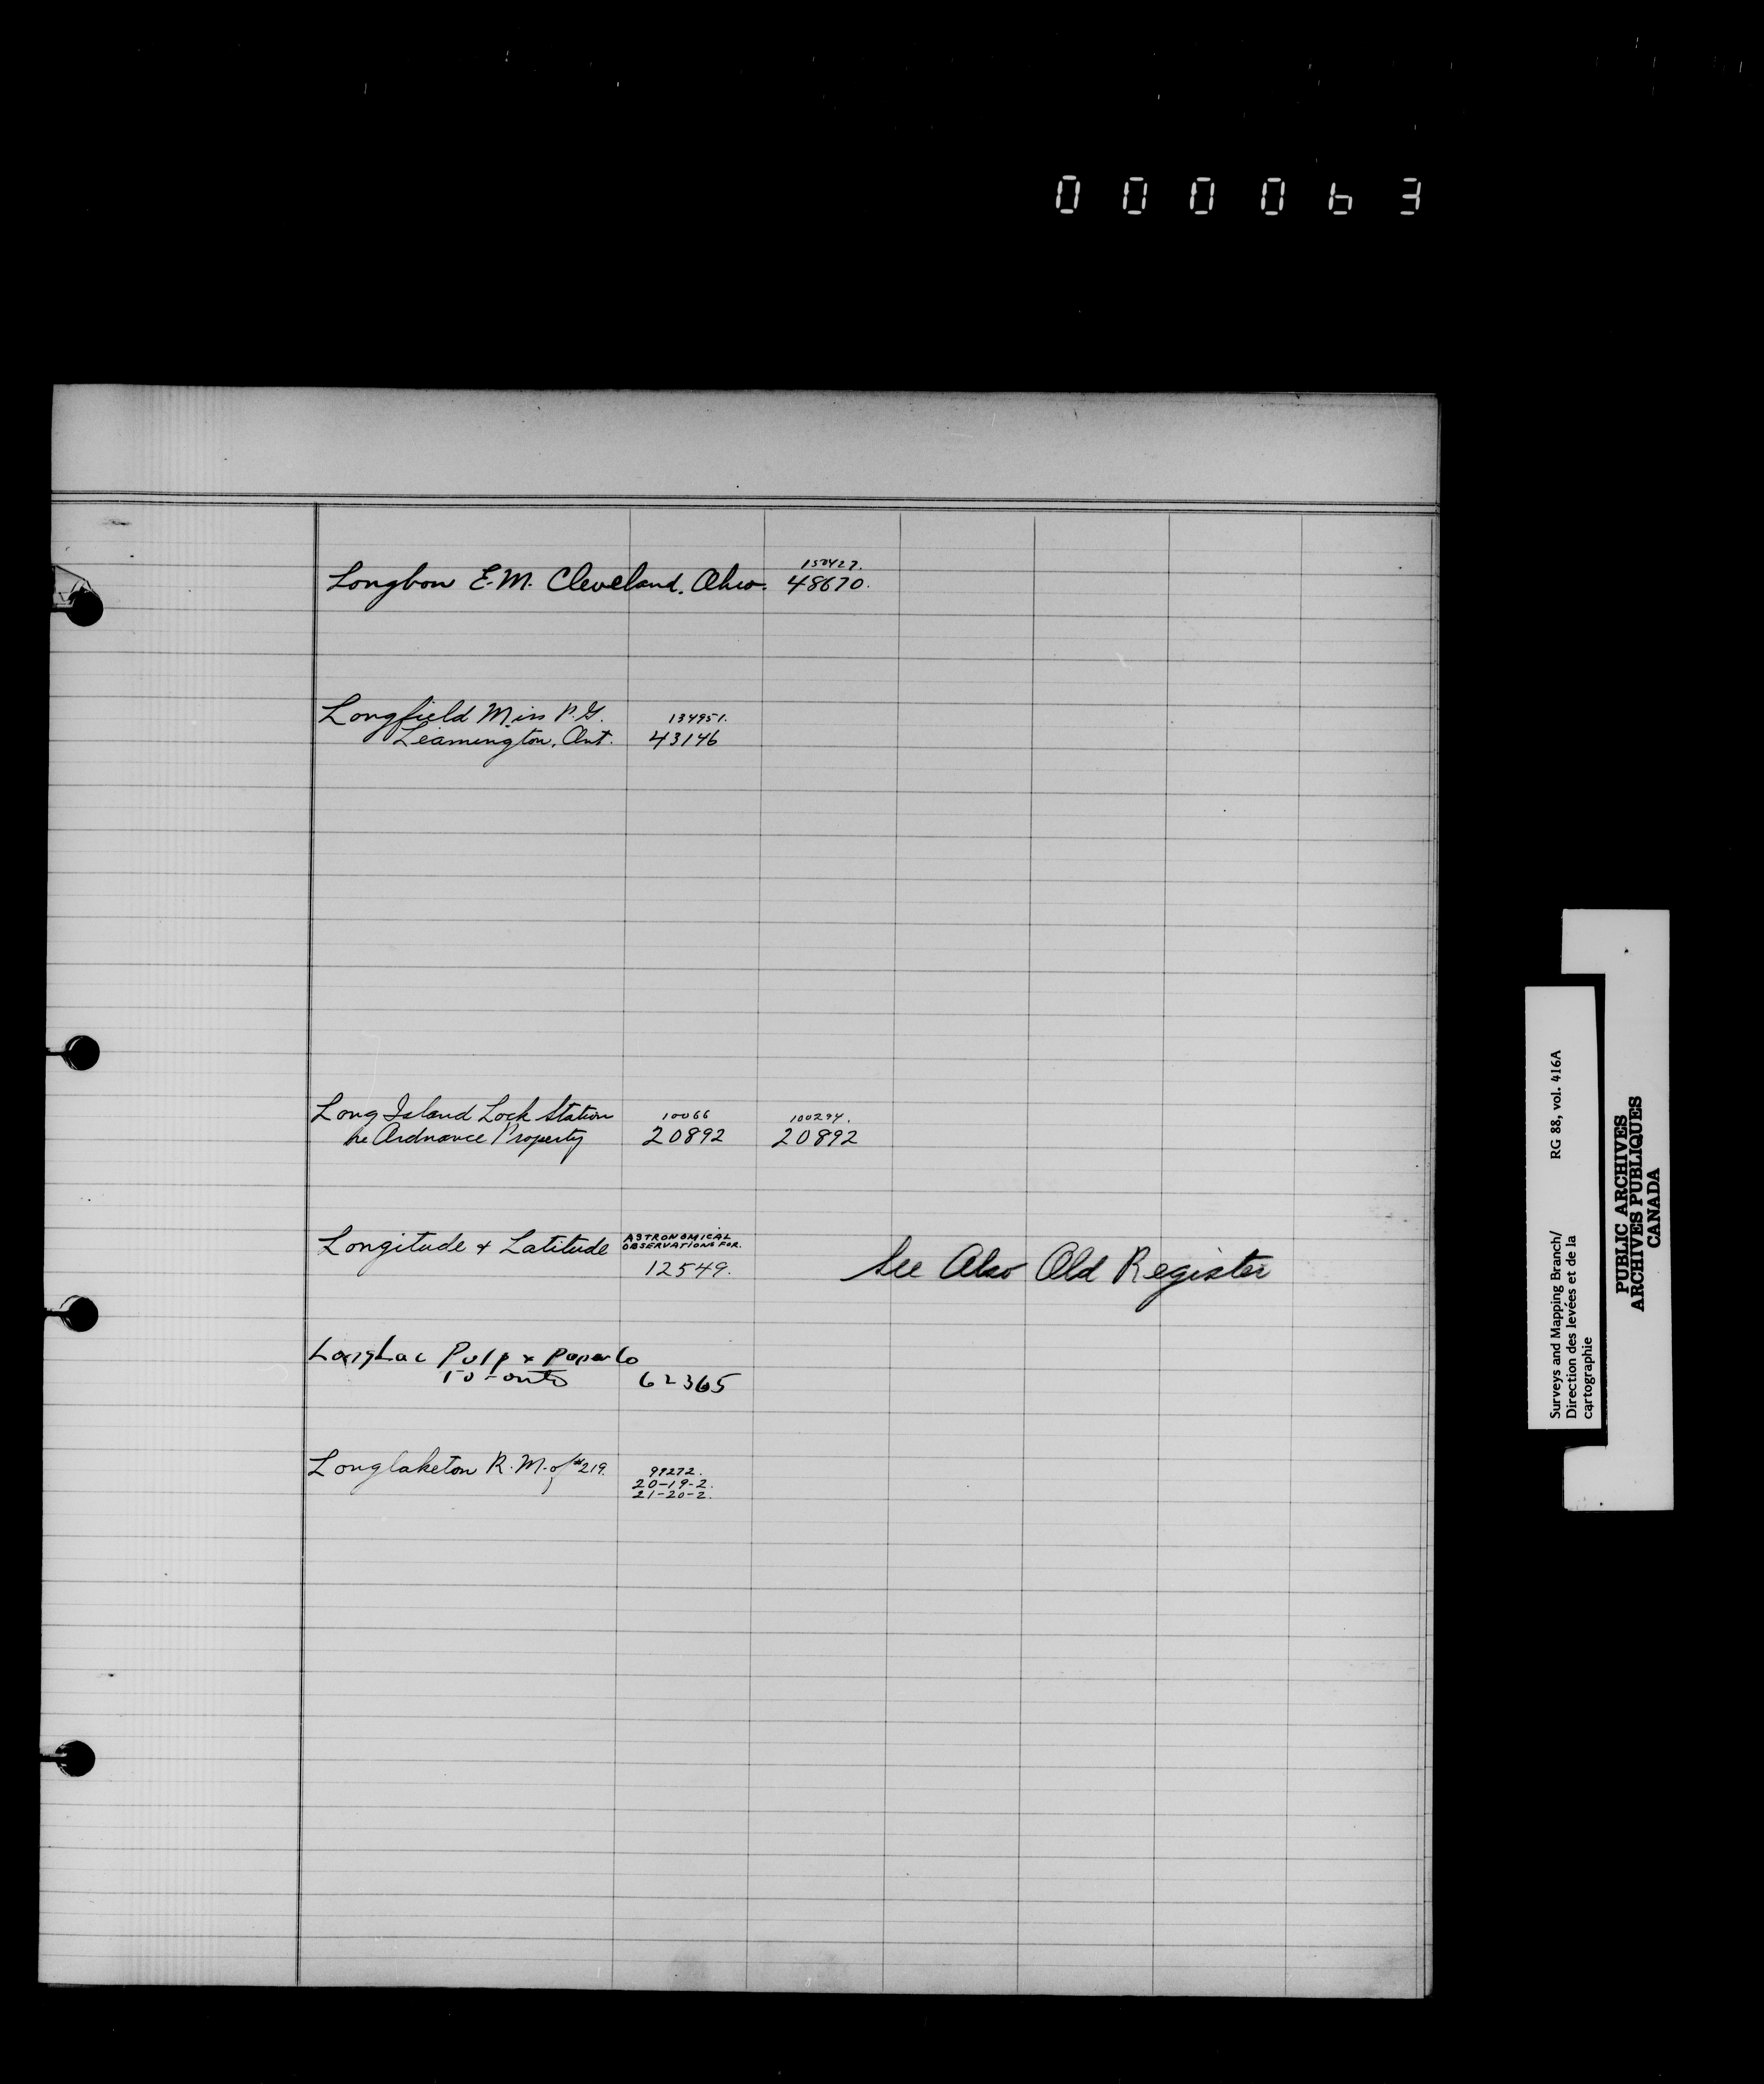 000063
150427.
Longbow E.M. Cleveland. Ohio. 48670.
Longfield Miss P.G. 134951.
Leamington, Ont. 43146
Long Island Lock Station 10066 100294.
re Ordnance Property 20892 20892
Longitude & Latitude ASTRONOMICAL
OBSERVATIONS FOR.
12549. See Also Old Register
LongLac Pulp & Paper Co
Toronto 62365
Longlaketon R.M. of #219. 99272.
20-19-2.
21-20-2.
Surveys and Mapping Branch/ RG 88, vol. 416A
Direction des levées et de la
cartographie
PUBLIC ARCHIVES
ARCHIVES PUBLIQUES
CANADA